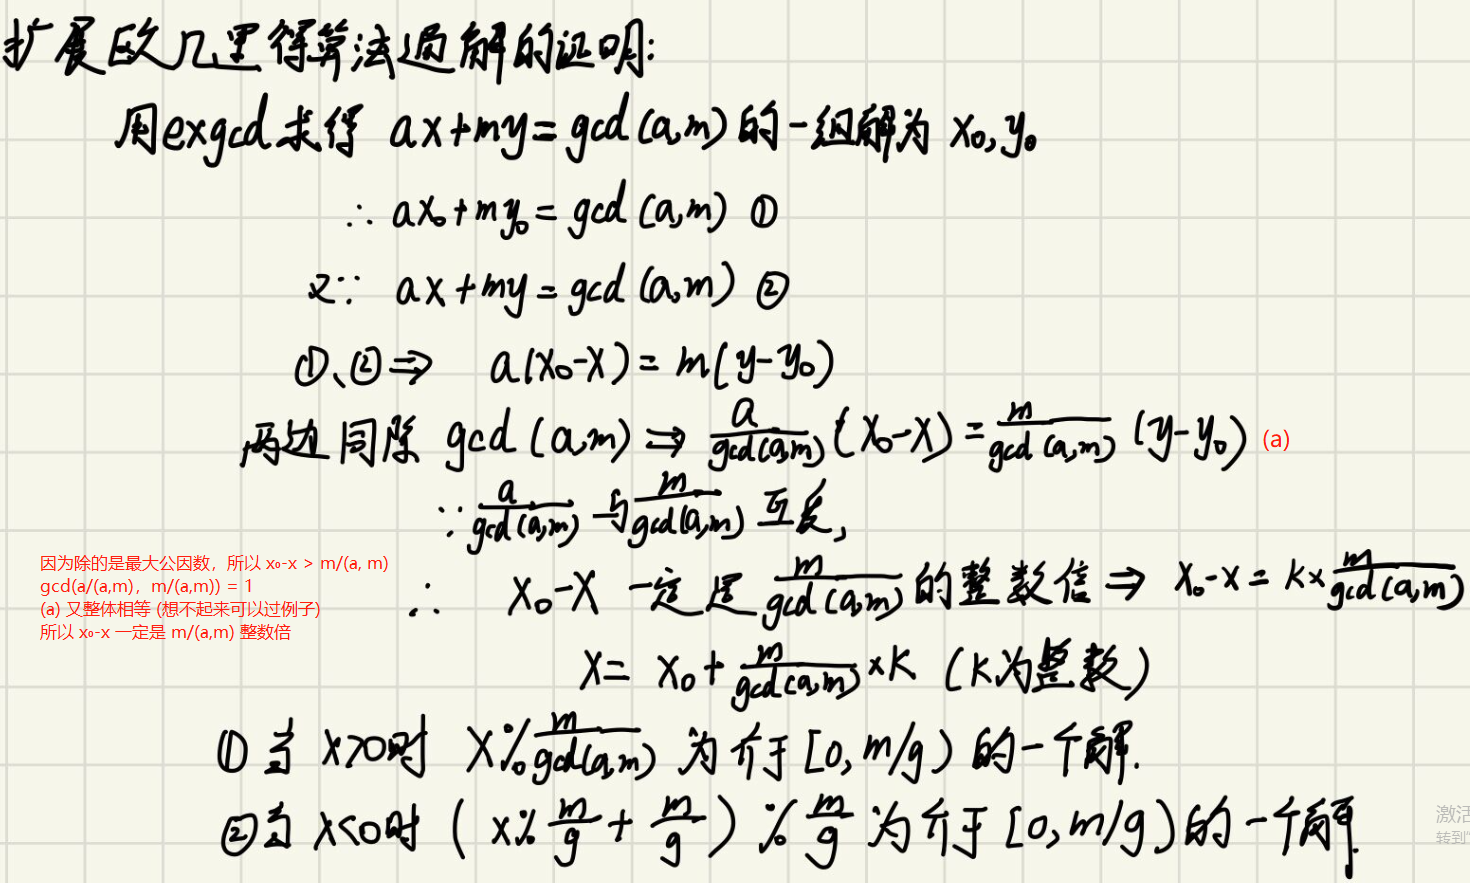 扩展欧几里得算法通解的证明:
用exgcd求得 ax+my=gcd(a,m)的一组解为 x₀,y₀
∴ ax₀+my₀=gcd(a,m) ①
又∵ ax+my=gcd(a,m) ②
①、②⇒ a(x₀-x)=m(y-y₀)
两边同除 gcd(a,m)⇒ a/gcd(a,m) (x₀-x)= m/gcd(a,m) (y-y₀) (a)
∵ a/gcd(a,m) 与 m/gcd(a,m) 互质,
因为除的是最大公因数，所以 x₀-x > m/(a, m)
gcd(a/(a,m)，m/(a,m)) = 1
(a) 又整体相等 (想不起来可以过例子)
所以 x₀-x 一定是 m/(a,m) 整数倍
∴ x₀-x 一定是 m/gcd(a,m) 的整数倍 ⇒ x₀-x = k× m/gcd(a,m)
x= x₀+ m/gcd(a,m) ×k (k为整数)
①当 x>0时 x% m/gcd(a,m) 为介于[0,m/g)的一个解.
②当 x<0时 (x% m/g + m/g)% m/g 为介于[0,m/g)的一个解.
激活
转到"